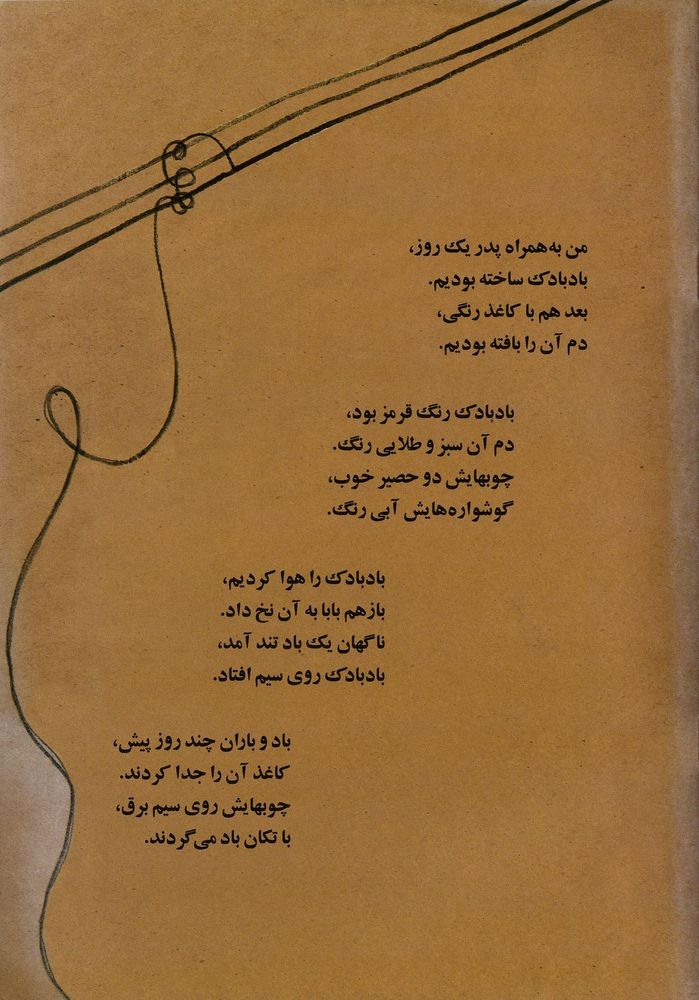 من به‌همراه پدر یک روز،
بادبادک ساخته بودیم.
بعد هم با کاغذ رنگی،
دم آن را بافته بودیم.
بادبادک رنگ قرمز بود،
دم آن سبز و طلایی رنگ.
چوبهایش دو حصیر خوب،
گوشواره‌هایش آبی رنگ.
بادبادک را هوا کردیم،
بازهم بابا به آن نخ داد.
ناگهان یک باد تند آمد،
بادبادک روی سیم افتاد.
باد و باران چند روز پیش،
کاغذ آن را جدا کردند.
چوبهایش روی سیم برق،
با تکان باد می‌گردند.